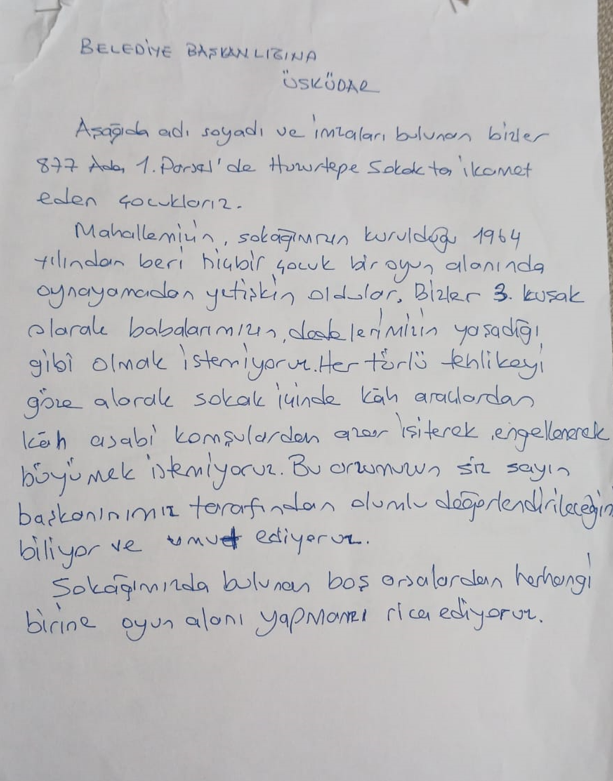 BELEDİYE BAŞKANLIĞINA
ÜSKÜDAR
Aşağıda adı soyadı ve imzaları bulunan bizler
877 Ada 1. Parsel'de Huzurtepe Sokakta ikamet
eden çocuklarız.
Mahallemizin, sokağımızın kurulduğu 1964
yılından beri hiçbir çocuk bir oyun alanında
oynayamadan yetişkin oldular. Bizler 3. kuşak
olarak babalarımızın, dedelerimizin yaşadığı
gibi olmak istemiyoruz. Her türlü tehlikeyi
göze alarak sokak içinde kâh araçlardan
kâh asabi komşulardan azar işiterek, engellenerek
büyümek istemiyoruz. Bu arzumuzun siz sayın
başkanınımız tarafından olumlu değerlendirileceğin
biliyor ve umut ediyoruz.
Sokağımızda bulunan boş arsalardan herhangi
birine oyun alanı yapmanızı rica ediyoruz.